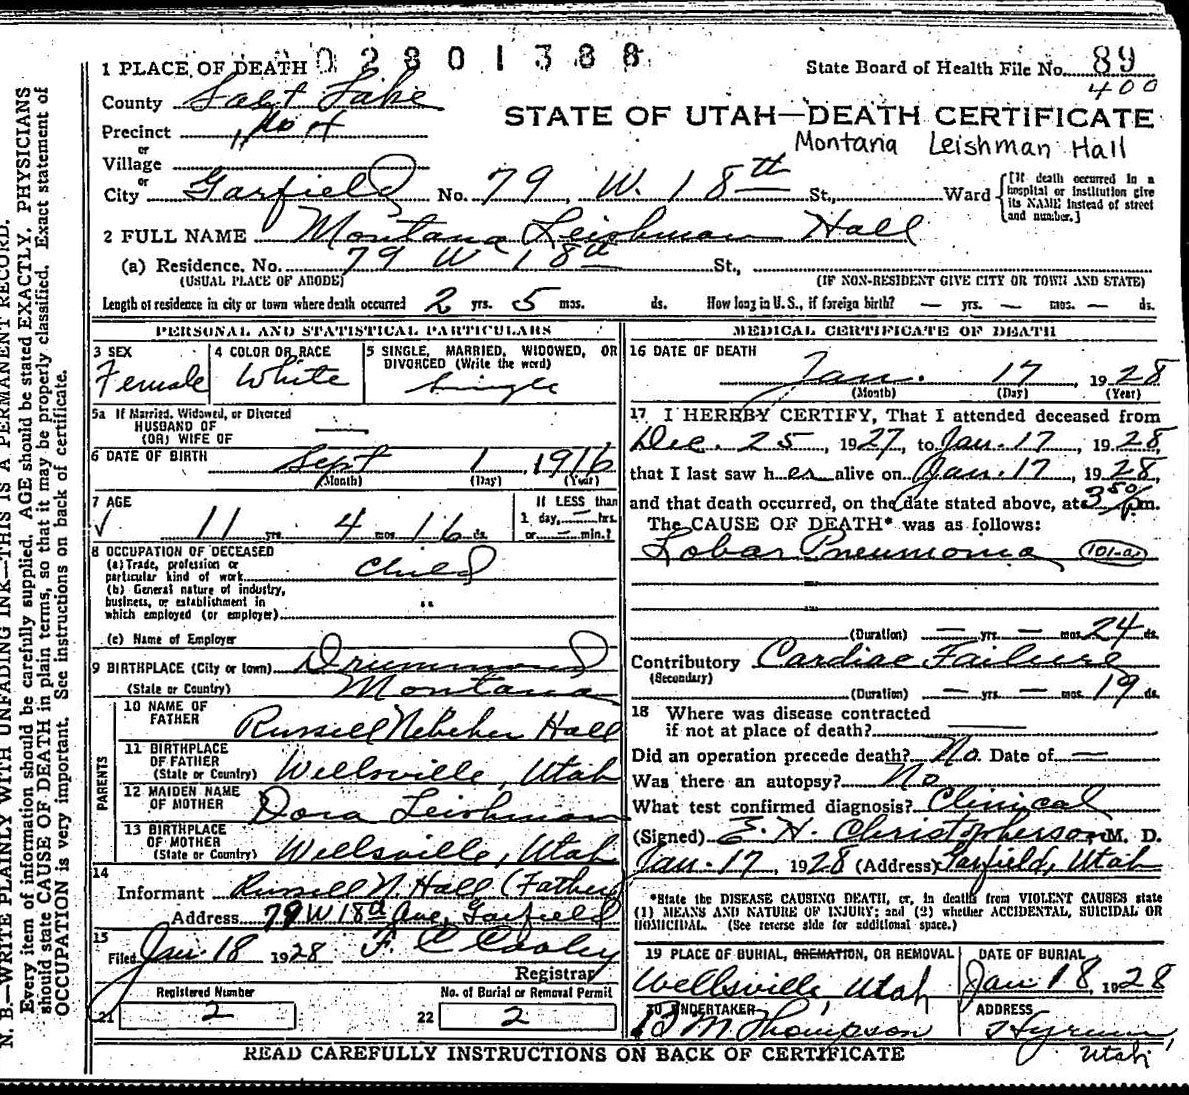 02801388
1 PLACE OF DEATH
State Board of Health File No. 89
400
County Salt Lake
STATE OF UTAH—DEATH CERTIFICATE
Precinct No 4
Montana Leishman Hall
or
Village
or
City Garfield No. 79 W. 18th St, Ward
[If death occurred in a hospital or institution give its NAME instead of street and number.]
2 FULL NAME Montana Leishman Hall
(a) Residence. No. 79 W 18th St.,
(USUAL PLACE OF ABODE) (IF NON-RESIDENT GIVE CITY OR TOWN AND STATE)
Length of residence in city or town where death occurred 2 yrs. 5 mos. ds. How long in U. S., if foreign birth? — yrs. — mos. — ds.
PERSONAL AND STATISTICAL PARTICULARS
3 SEX
Female
4 COLOR OR RACE
White
5 SINGLE, MARRIED, WIDOWED, OR
DIVORCED (Write the word)
Single
5a If Married, Widowed, or Divorced
HUSBAND OF
(OR) WIFE OF —
6 DATE OF BIRTH Sept 1, 1916
(Month) (Day) (Year)
7 AGE
✓ 11 yrs 4 mos 16 ds.
If LESS than
1 day, — hrs.
or — min.?
8 OCCUPATION OF DECEASED
(a) Trade, profession or
particular kind of work Child
(b) General nature of industry,
business, or establishment in
which employed (or employer) "
(c) Name of Employer
9 BIRTHPLACE (City or town) Drummond
(State or Country) Montana
PARENTS
10 NAME OF
FATHER Russell Hall
11 BIRTHPLACE
OF FATHER
(State or Country) Wellsville, Utah
12 MAIDEN NAME
OF MOTHER Dora Leishman
13 BIRTHPLACE
OF MOTHER
(State or Country) Wellsville, Utah
14
Informant Russell N. Hall (Father)
Address 79 W 18th Ave, Garfield
15
Filed Jan. 18 1928 F. C. Cooley
Registrar
Registered Number
21 2
No. of Burial or Removal Permit
22 2
MEDICAL CERTIFICATE OF DEATH
16 DATE OF DEATH
Jan. 17, 1928
(Month) (Day) (Year)
17 I HEREBY CERTIFY, That I attended deceased from
Dec. 25, 1927, to Jan. 17, 1928,
that I last saw her alive on Jan. 17, 1928,
and that death occurred, on the date stated above, at 3 50/pm.
The CAUSE OF DEATH* was as follows:
Lobar Pneumonia 101-a
(Duration) — yrs. — mos. 24 ds.
Contributory Cardiac Failure
(Secondary)
(Duration) — yrs. — mos. 19 ds.
18 Where was disease contracted
if not at place of death? —
Did an operation precede death? No. Date of —
Was there an autopsy? No
What test confirmed diagnosis? Clinical
(Signed) E. H. Christopherson, M. D.
Jan. 17, 1928 (Address) Garfield, Utah
*State the DISEASE CAUSING DEATH, or, in deaths from VIOLENT CAUSES state
(1) MEANS AND NATURE OF INJURY; and (2) whether ACCIDENTAL, SUICIDAL OR
HOMICIDAL. (See reverse side for additional space.)
19 PLACE OF BURIAL, CREMATION, OR REMOVAL
Wellsville, Utah
DATE OF BURIAL
Jan 18, 1928
20 UNDERTAKER
M Thompson
ADDRESS
Hyrum
Utah
READ CAREFULLY INSTRUCTIONS ON BACK OF CERTIFICATE
N. B.—WRITE PLAINLY WITH UNFADING INK—THIS IS A PERMANENT RECORD.
Every item of information should be carefully supplied. AGE should be stated EXACTLY. PHYSICIANS
should state CAUSE OF DEATH in plain terms, so that it may be properly classified. Exact statement of
OCCUPATION is very important. See instructions on back of certificate.